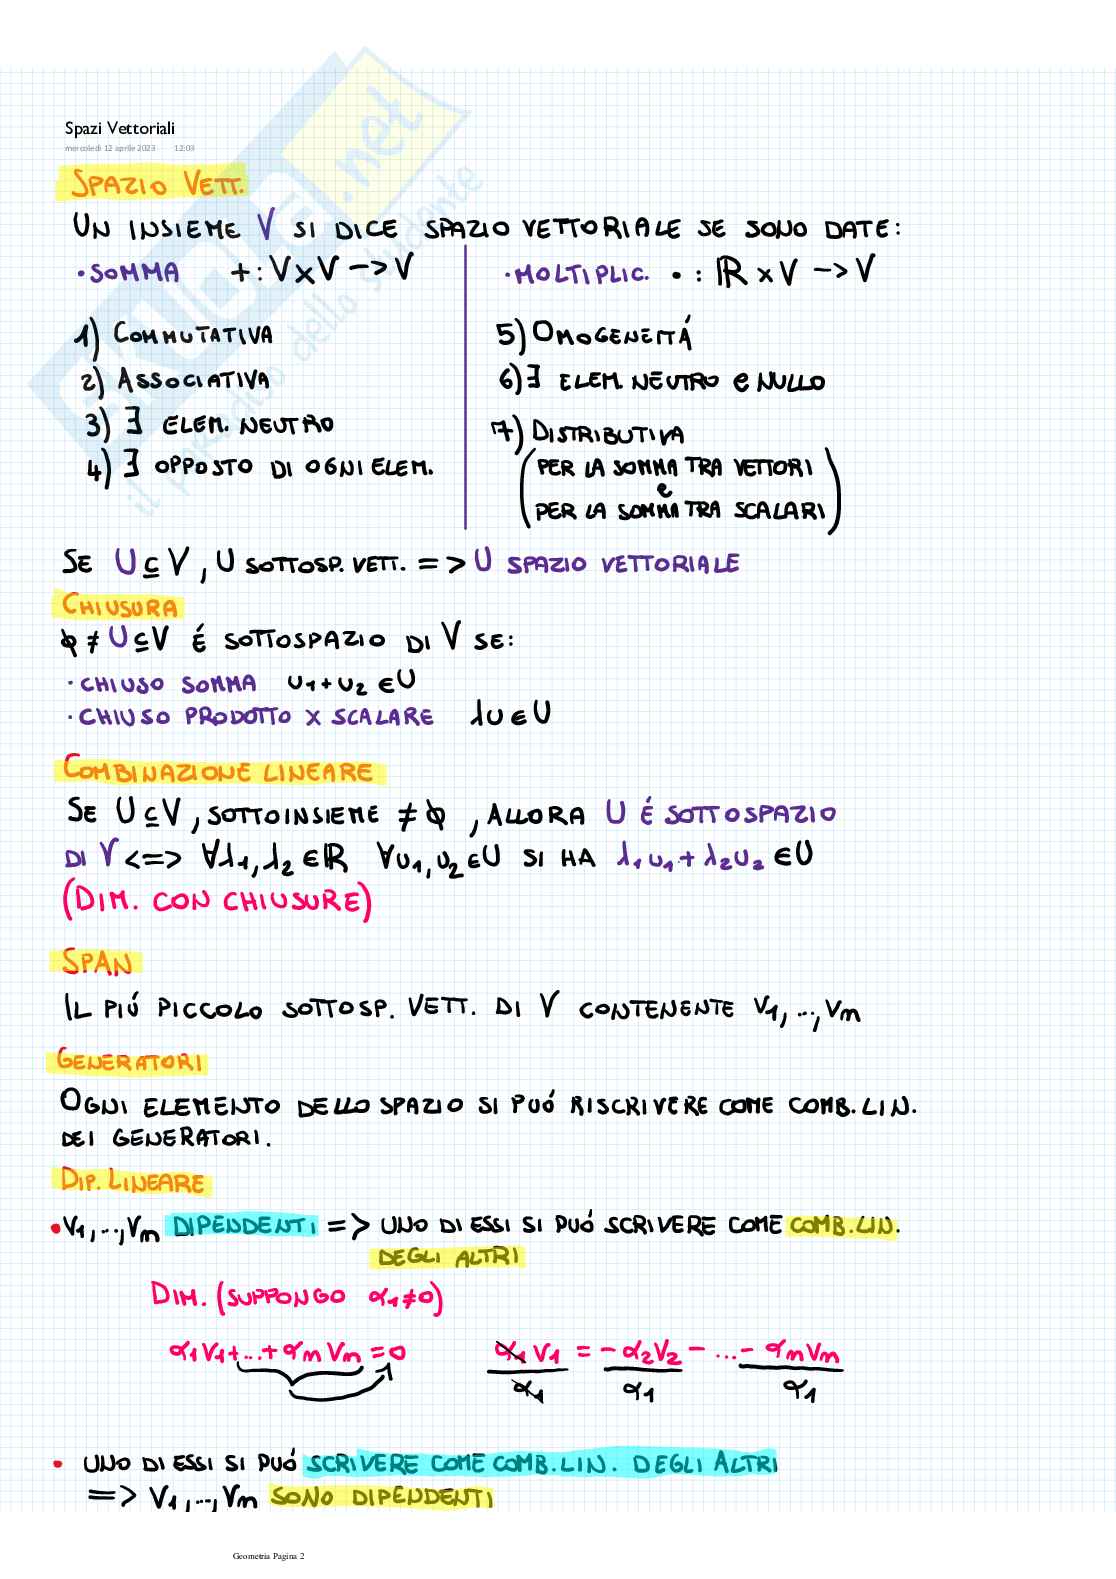 Spazi Vettoriali
mercoledì 12 aprile 2023 12:03
SPAZIO VETT.
UN INSIEME V SI DICE SPAZIO VETTORIALE SE SONO DATE:
• SOMMA + : V x V -> V
1) COMMUTATIVA
2) ASSOCIATIVA
3) ∃ ELEM. NEUTRO
4) ∃ OPPOSTO DI OGNI ELEM.
• MOLTIPLIC. • : ℝ x V -> V
5) OMOGENEITÁ
6) ∃ ELEM. NEUTRO e NULLO
7) DISTRIBUTIVA
(PER LA SOMMA TRA VETTORI
e
PER LA SOMMA TRA SCALARI)
SE U ⊆ V, U SOTTOSP. VETT. => U SPAZIO VETTORIALE
CHIUSURA
ϕ ≠ U ⊆ V É SOTTOSPAZIO DI V SE:
• CHIUSO SOMMA u1 + u2 ∈ U
• CHIUSO PRODOTTO X SCALARE λu ∈ U
COMBINAZIONE LINEARE
SE U ⊆ V, SOTTOINSIEME ≠ ϕ, ALLORA U É SOTTOSPAZIO
DI V <=> ∀λ1, λ2 ∈ ℝ ∀u1, u2 ∈ U SI HA λ1u1 + λ2u2 ∈ U
(DIM. CON CHIUSURE)
SPAN
IL PIÚ PICCOLO SOTTOSP. VETT. DI V CONTENENTE V1, ..., Vm
GENERATORI
OGNI ELEMENTO DELLO SPAZIO SI PUÓ RISCRIVERE COME COMB. LIN.
DEI GENERATORI.
DIP. LINEARE
• V1, ..., Vm DIPENDENTI => UNO DI ESSI SI PUÓ SCRIVERE COME COMB. LIN.
DEGLI ALTRI
DIM. (SUPPONGO α1 ≠ 0)
α1V1 + ... + αmVm = 0 α1V1/α1 = -α2V2/α1 - ... - αmVm/α1
• UNO DI ESSI SI PUÓ SCRIVERE COME COMB. LIN. DEGLI ALTRI
=> V1, ..., Vm SONO DIPENDENTI
Geometria Pagina 2
SKUOLA.net
il portale dello studente